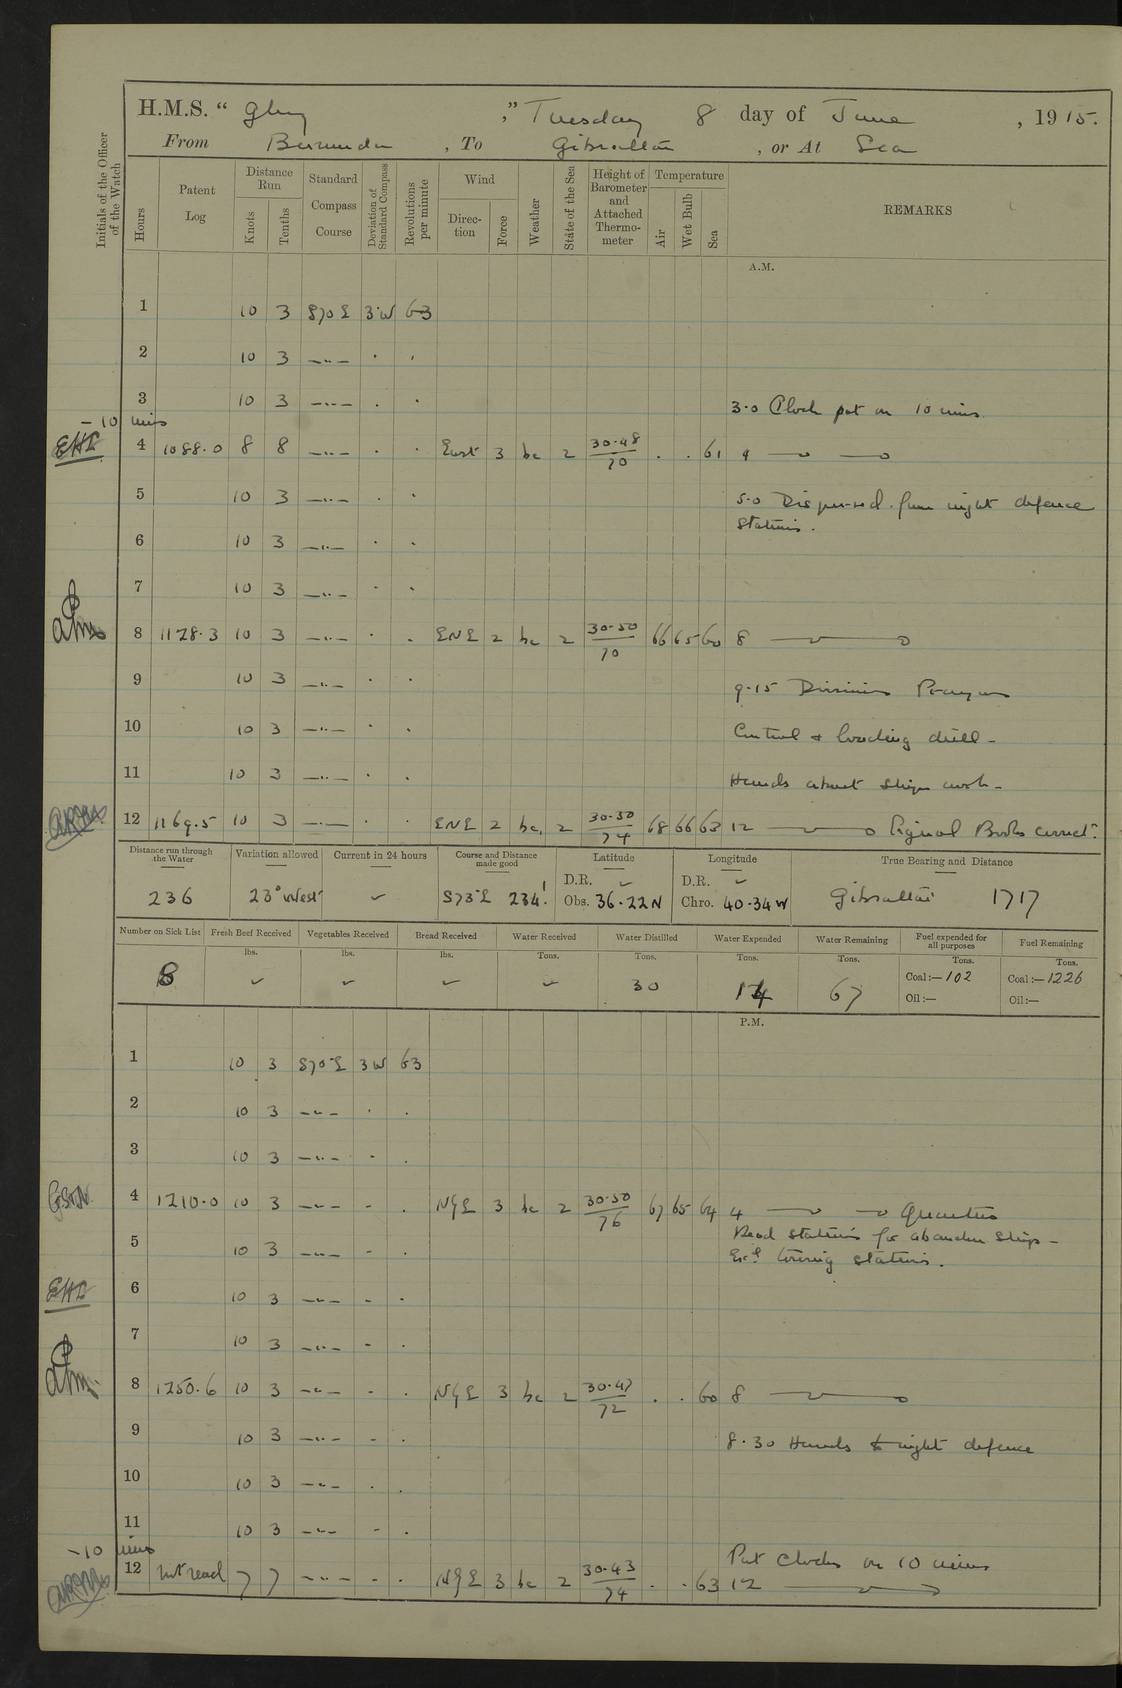 H.M.S. “ Glory ,” Tuesday 8 day of June , 1915.
From Bermuda , To Gibraltar , or At Sea
Initials of the Officer of the Watch
Hours
Patent Log
Distance Run
Knots
Tenths
Standard Compass Course
Deviation of Standard Compass
Revolutions per minute
Wind
Direction
Force
Weather
State of the Sea
Height of Barometer and Attached Thermometer
Temperature
Air
Wet Bulb
Sea
REMARKS
A.M.
1 10 3 S70E 3·W 63
2 10 3 —"— · ·
3 10 3 —"— · · 3.0 Clock put on 10 mins.
- 10 mins
EHL 4 1088.0 8 8 —"— · · East 3 bc 2 30.48/70 · · 61 4
5 10 3 —"— · · 5.0 Dispersed from night defence
stations.
6 10 3 —"— · ·
7 10 3 —"— · ·
8 1128.3 10 3 —"— · · ENE 2 bc 2 30.50/70 66 65 60 8
9 10 3 —"— · · 9.15 Divisions Prayers
10 10 3 —"— · · Control & loading drill -
11 10 3 —"— · · Hands about ships work -
12 1169.5 10 3 —"— · · ENE 2 bc, 2 30.50/74 68 66 63 12 Signal Books correct.
Distance run through the Water
Variation allowed
Current in 24 hours
Course and Distance made good
Latitude
Longitude
True Bearing and Distance
236 23° West ✓ S73°E 234' D.R. ✓ Obs. 36.22 N D.R. ✓ Chro. 40.34 W Gibraltar 1717
Number on Sick List
Fresh Beef Received
Vegetables Received
Bread Received
Water Received
Water Distilled
Water Expended
Water Remaining
Fuel expended for all purposes
Fuel Remaining
lbs. lbs. lbs. Tons. Tons. Tons. Tons. Tons. Tons.
8 ✓ ✓ ✓ ✓ 30 14 67 Coal:—102 Coal:—1226
Oil:— Oil:—
P.M.
1 10 3 S70°E 3W 63
2 10 3 —"— · ·
3 10 3 —"— - ·
4 1210.0 10 3 —"— - · NEE 3 bc 2 30.50/76 67 65 64 4 Quarters
Read stations for abandon ship -
5 10 3 —"— - · Exd towing stations.
EHL 6 10 3 —"— - ·
7 10 3 —"— - ·
8 1250.6 10 3 —"— - · 3 bc 2 30.47/72 · · 60 8
9 10 3 —"— - · 8.30 Hands to night defence
10 10 3 —"— · ·
11 10 3 —"— - ·
- 10 mins Put clocks on 10 mins
12 Not read 7 7 —"— - · 3 bc 2 30.43/74 · · 63 12